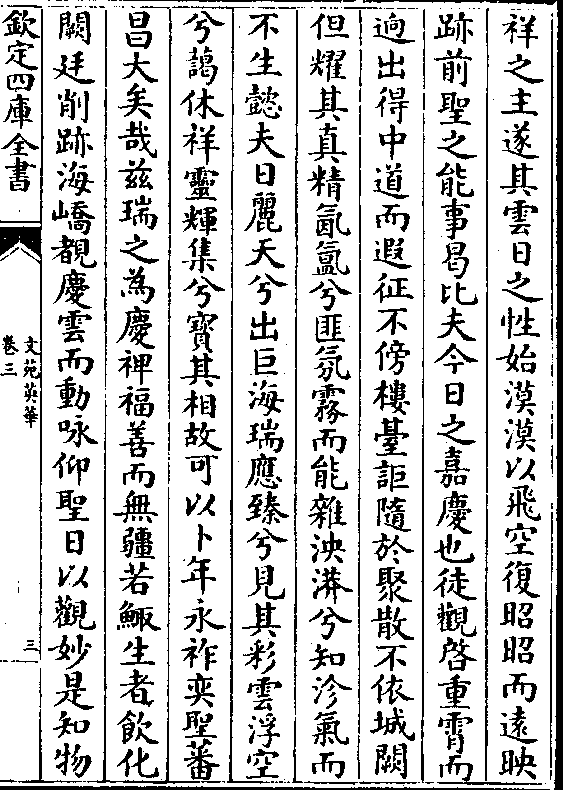 祥之主遂其雲日之性始漠漠以飛空復昭昭而遠映
跡前聖之能事曷比夫今日之嘉慶也徒觀啓重霄而
逈出得中道而遐征不傍樓臺詎隨於聚散不依城闕
但耀其真精氤氳兮匪氛霧而能雜泱漭兮知沴氣而
不生懿夫日麗天兮出巨海瑞應臻兮見其彩雲浮空
兮藹休祥靈輝集兮寳其相故可以卜年永祚奕聖蕃
昌大矣哉兹瑞之為慶裨福善而無疆若鯫生者飲化
闕廷削跡海嶠覩慶雲而動咏仰聖日以觀妙是知物
欽定四庫全書
文苑英華
卷三
三